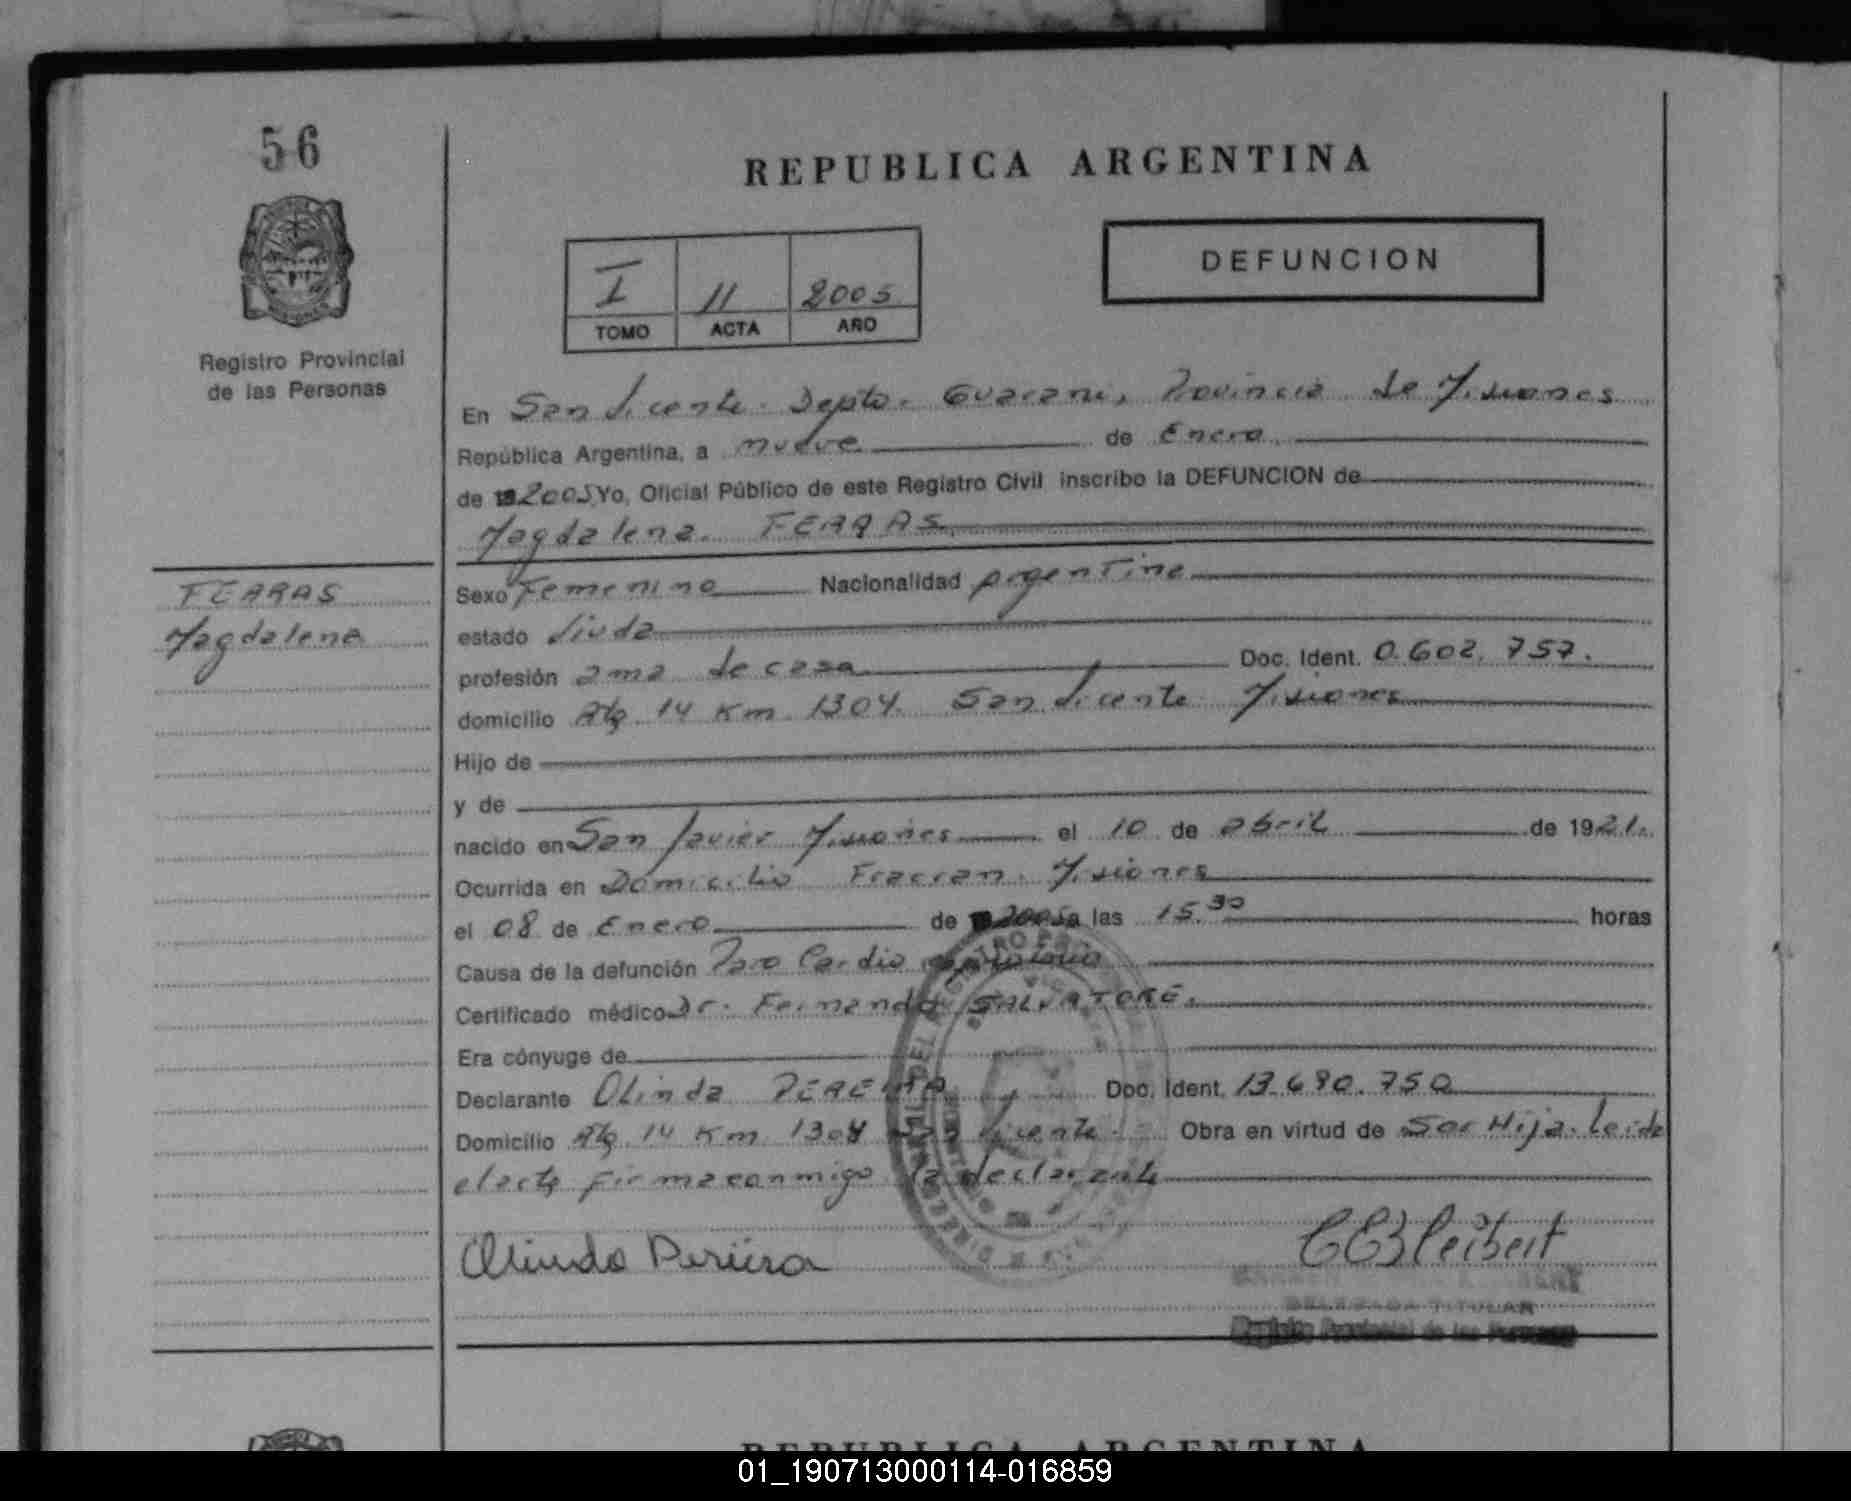 56
REPUBLICA ARGENTINA
DEFUNCION
I 11 2005
TOMO ACTA AÑO
Registro Provincial
de las Personas
En San Vicente. Depto. Guarani, Provincia de Misiones
República Argentina, a nueve de Enero
de 19 2005 Yo, Oficial Público de este Registro Civil inscribo la DEFUNCION de
Magdalena. FERRAS
FERRAS
Magdalena
Sexo Femenino Nacionalidad argentina
estado Viuda
profesión ama de casa Doc. Ident. 0.602.757.
domicilio Rta 14 Km 1304. San Vicente Misiones
Hijo de
y de
nacido en San Javier Misiones el 10 de abril de 1921.
Ocurrida en Domicilio Fracran. Misiones
el 08 de Enero de 2005 a las 15.30 horas
Causa de la defunción Paro Cardio respiratorio
Certificado médico Dr. Fernando SALVATORE.
Era cónyuge de
Declarante Olinda PEREIRA Doc. Ident. 13.690.750
Domicilio Rta 14 Km 1304 San Vicente. Obra en virtud de Ser Hija. Leida
el acta firma conmigo la declarante
Olinda Pereira
DELEGADA TITULAR
Registro Provincial de las Personas
REPUBLICA ARGENTINA
01_190713000114-016859